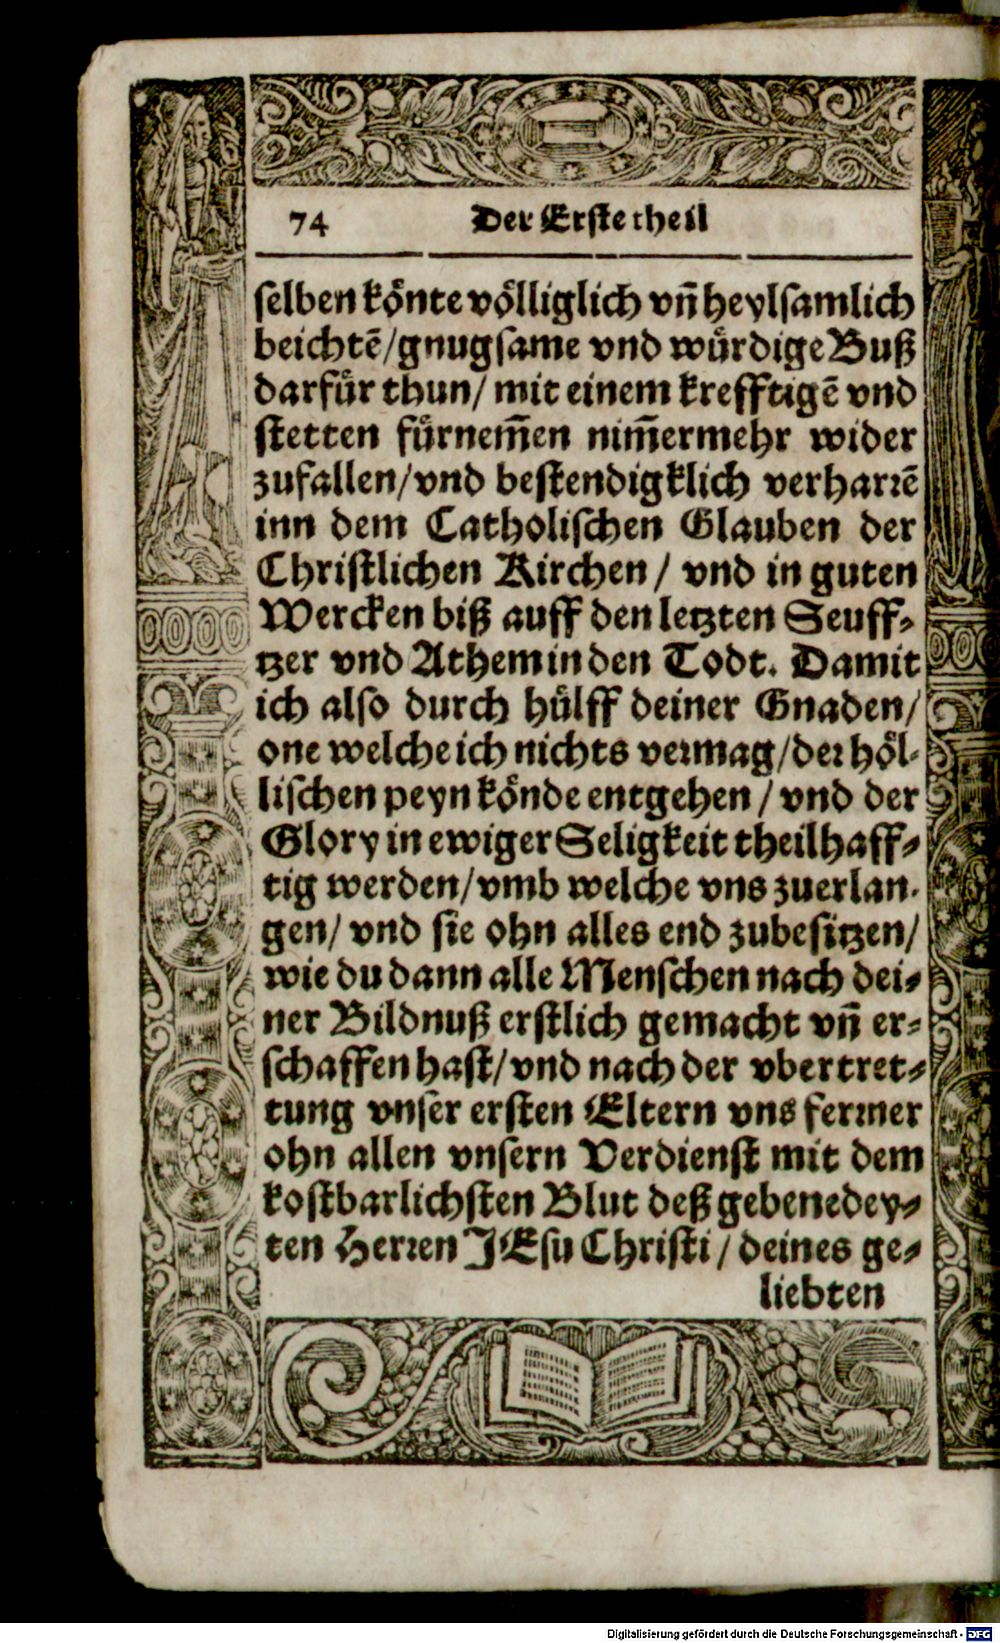 74 Der Erste theil
selben koͤnte voͤlliglich vñ heylsamlich
beichtẽ/gnugsame vnd wuͤrdige Buß
darfuͤr thun/ mit einem krefftigẽ vnd
stetten fuͤrnem̃en nim̃ermehr wider
zufallen/vnd bestendigklich verharrẽ
inn dem Catholischen Glauben der
Christlichen Kirchen/ vnd in guten
Wercken biß auff den letzten Seuff-
tzer vnd Athem in den Todt. Damit
ich also durch huͤlff deiner Gnaden/
one welche ich nichts vermag/der hoͤl-
lischen peyn koͤnde entgehen/ vnd der
Glory in ewiger Seligkeit theilhaff-
tig werden/vmb welche vns zuerlan-
gen/ vnd sie ohn alles end zubesitzen/
wie du dann alle Menschen nach dei-
ner Bildnuß erstlich gemacht vñ er-
schaffen hast/vnd nach der vbertret-
tung vnser ersten Eltern vns ferrner
ohn allen vnsern Verdienst mit dem
kostbarlichsten Blut deß gebenedey-
ten Herren JEsu Christi/ deines ge-
liebten
Digitalisierung gefördert durch die Deutsche Forschungsgemeinschaft - DFG